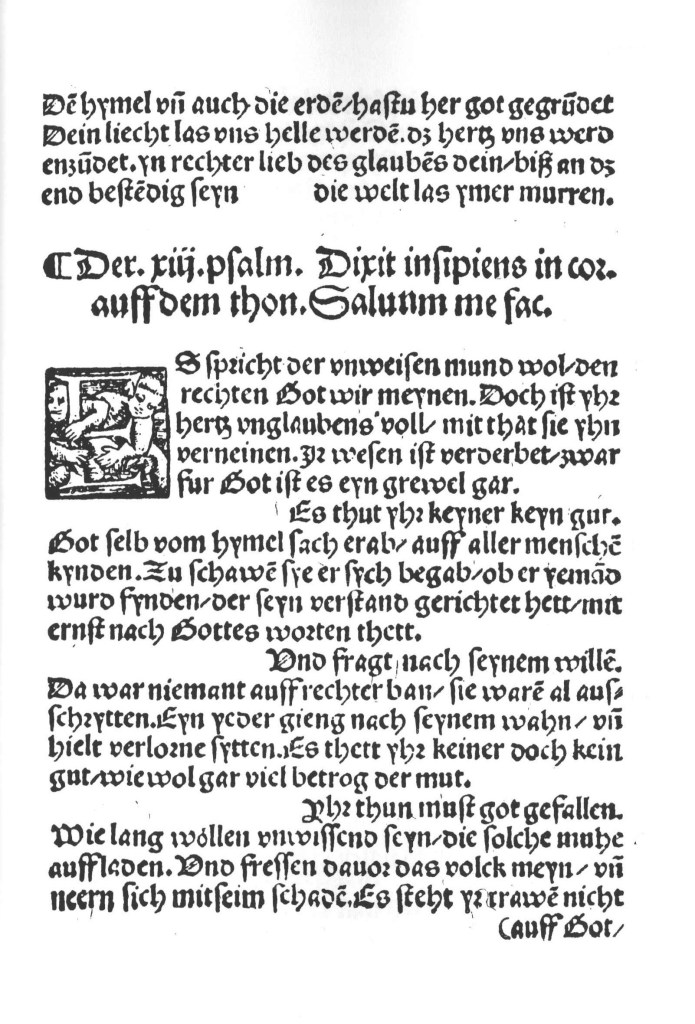 Dē hymel vñ auch die erdē/hastu her got gegrūdet
Dein liecht las vns helle werdē.dz hertz vns werd
enzūdet.yn rechter lieb des glaubēs dein/biß an dz
end bestēdig seyn die welt las ymer murren.
¶ Der. xiij.psalm. Dixit insipiens in cor.
auff dem thon. Saluum me fac.
S spricht der vnweisen mund wol/den
rechten Got wir meynen. Doch ist yhr
hertz vnglaubens voll/ mit that sie yhn
verneinen. Ir wesen ist verderbet/zwar
fur Got ist es eyn grewel gar.
Es thut yhr keyner keyn gut.
Got selb vom hymel sach erab/ auff aller menschē
kynden. Zu schawē sye er sych begab/ob er yemād
wurd fynden/der seyn verstand gerichtet hett/mit
ernst nach Gottes worten thett.
Vnd fragt nach seynem willē.
Da war niemant auff rechter ban/ sie warē al aus/
schrytten.Eyn yeder gieng nach seynem wahn/ vñ
hielt verlorne sytten.Es thett yhr keiner doch kein
gut/wie wol gar viel betrog der mut.
Yhr thun must got gefallen.
Wie lang wöllen vnwissend seyn/die solche muhe
auffladen. Vnd fressen dauor das volck meyn/ vñ
neern sich mit seim schadē.Es steht yr trawē nicht
(auff Got/